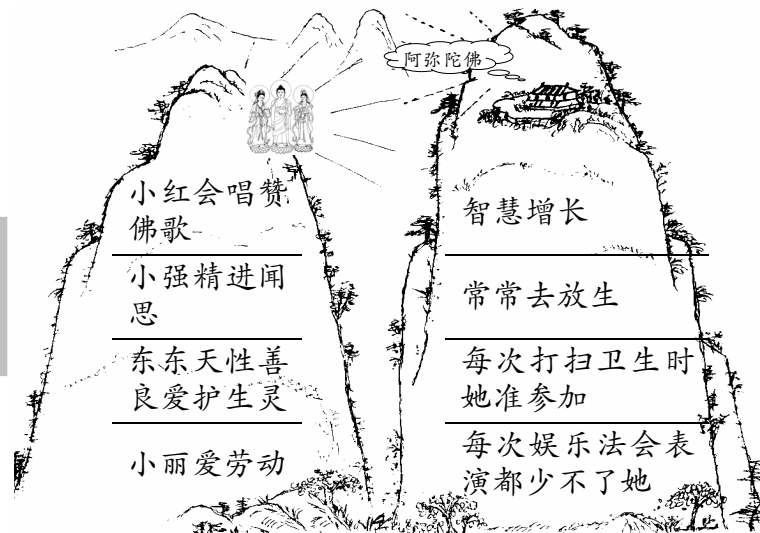 阿弥陀佛
小红会唱赞
佛歌
小强精进闻
思
东东天性善
良爱护生灵
小丽爱劳动
智慧增长
常常去放生
每次打扫卫生时
她准参加
每次娱乐法会表
演都少不了她